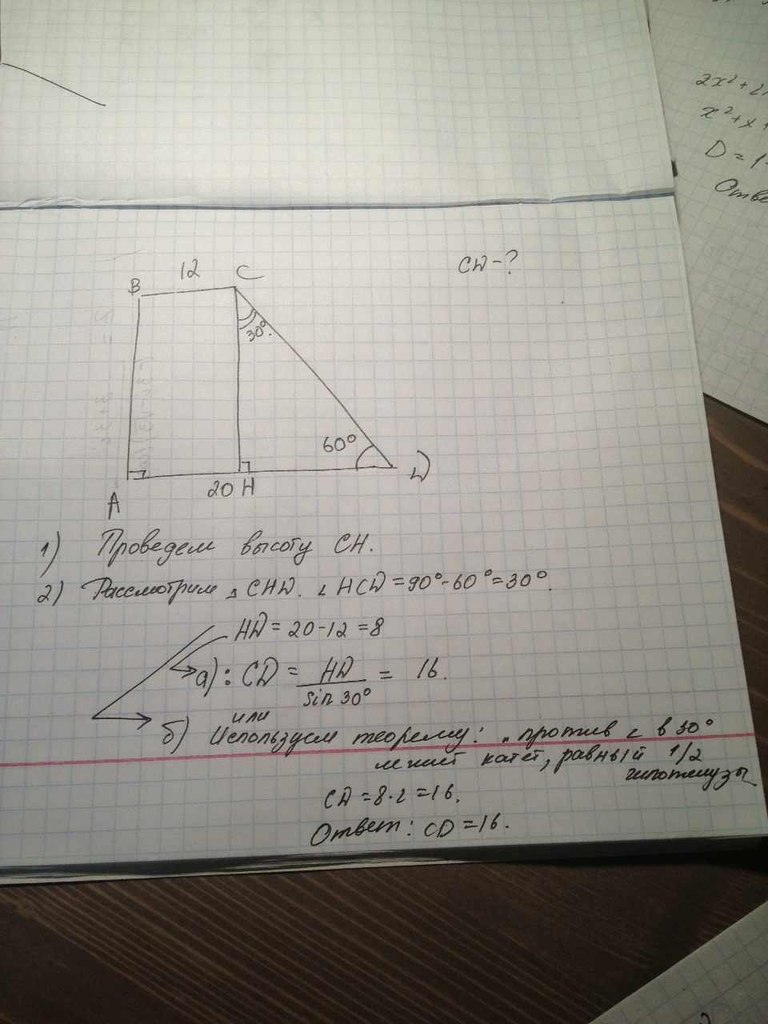 2x²+2
x²+x+
D=1-
Отве
12
B
C
CD-?
30°.
60°
D
A
20 H
1) Проведем высоту CH.
2) Рассмотрим △ CHD. ∠ HCD=90°-60°=30°.
HD=20-12=8
а): CD = HD / sin 30° = 16.
или
б) Используем теорему: "против ∠ в 30°
лежит катет, равный 1/2
гипотенузы
CD=8·2=16.
Ответ: CD=16.